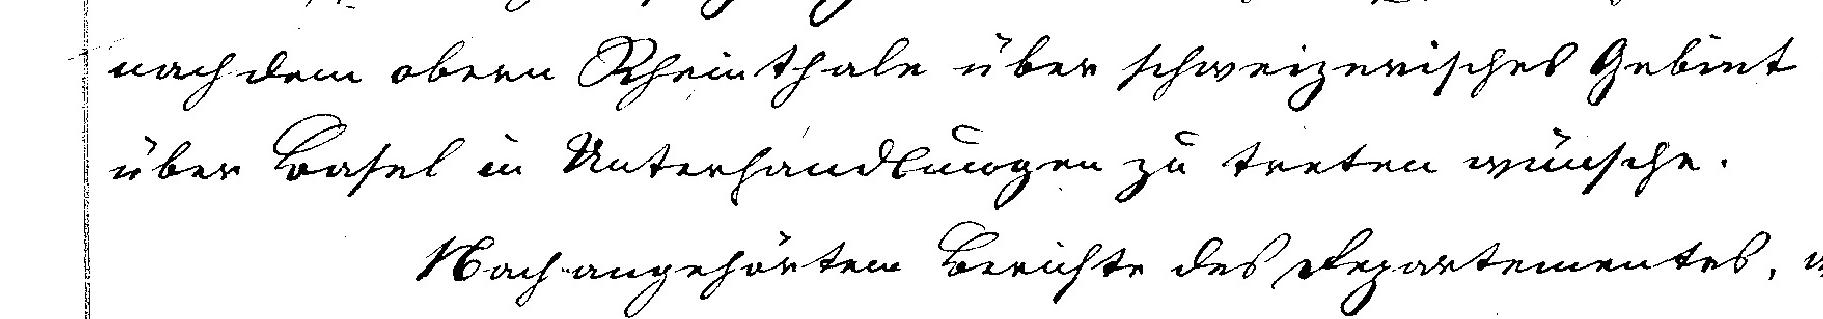 nach dem obern Rheinthale über schweizerisches Gebiet
über Basel in Unterhandlungen zu treten wünsche.
Nach angehörtem Berichte des Departementes,